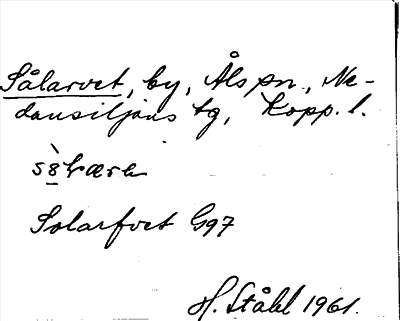 Sålarvet, by, Åls sn., Ne-
dansiljans tg, Kopp. l.
Solarfvet G97
H. Ståhl 1961.